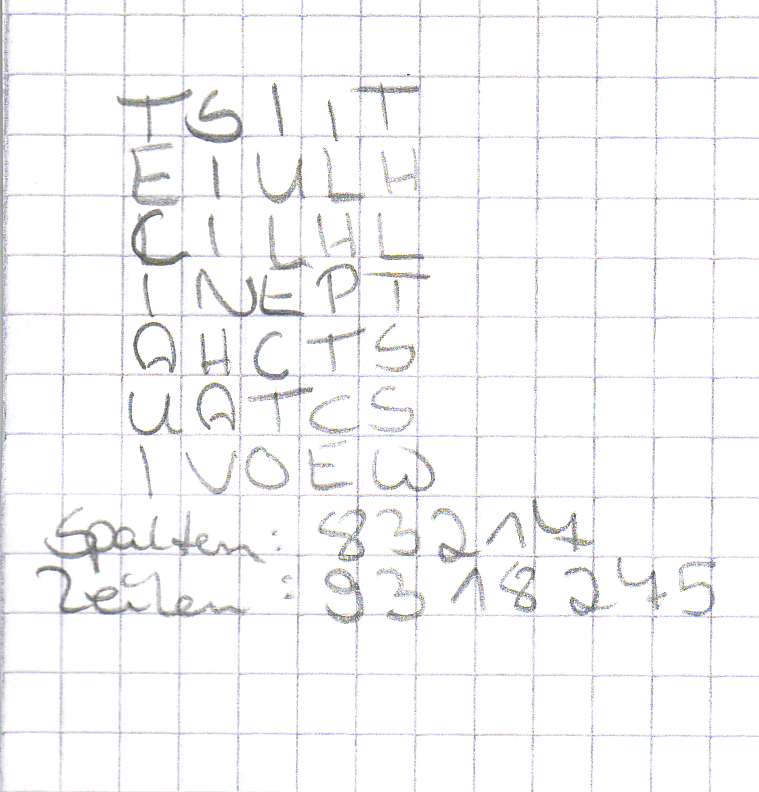 T S I I T
E I U L H
C I L H L
I N E P T
A H C T S
U A T C S
I V O E W
Spalten: 83217
Zeilen: 9318245